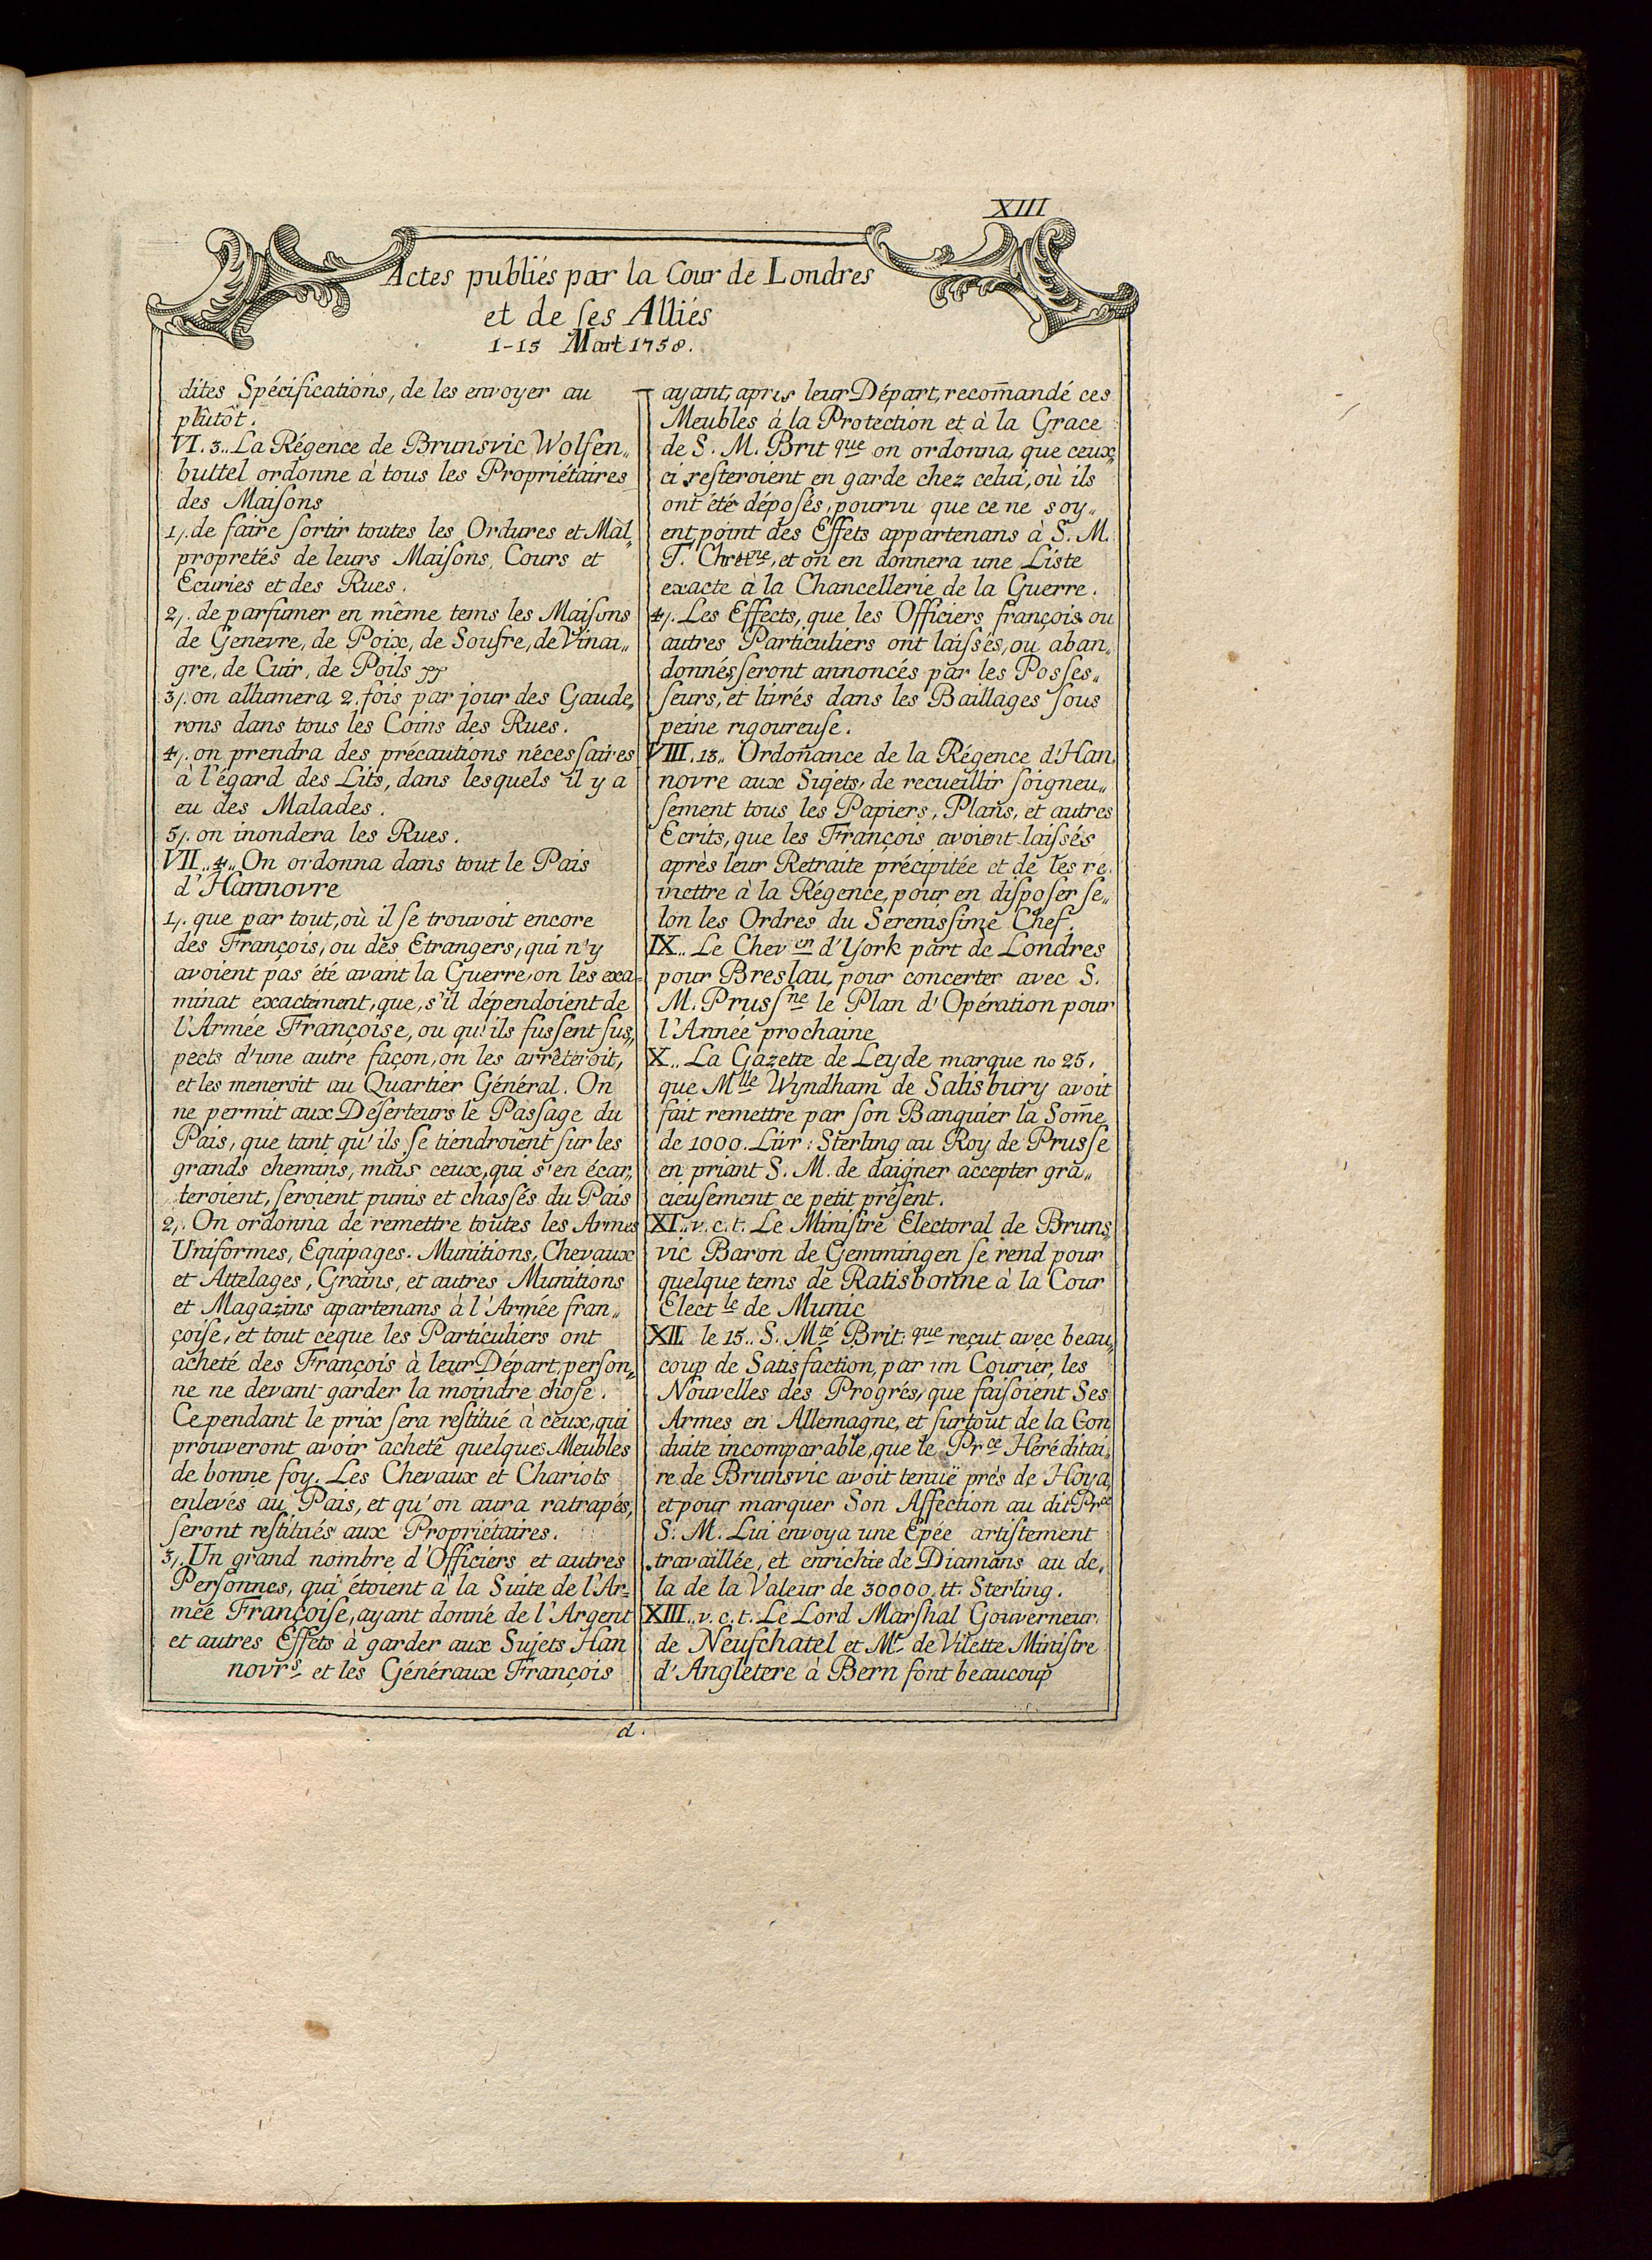 XIII
Actes publiés par la Cour de Londres
et de ſes Alliés
1-15 Mart 1758.
dites Spécifications, de les envoyer au
plûtôt.
VI. 3.. La Régence de Brunsvic Wolfen„
buttel ordonne à tous les Propriétaires
des Maiſons
1/. de faire ſortir toutes les Ordures et Mal„
propretés de leurs Maiſons, Cours et
Ecuries et des Rues.
2/. de parfumer en même tems les Maiſons
de Genevre, de Poix, de Soufre, de Vinai„
gre, de Cuir, de Poils
3/. on allumera 2. fois par jour des Gaude„
rons dans tous les Coins des Rues.
4/. on prendra des précautions néceſsaires
à l'égard des Lits, dans lesquels il y a
eu des Malades.
5/. on inondera les Rues.
VII..4„ On ordonna dans tout le Pais
d'Hannovre
1/. que par tout, où il ſe trouvoit encore
des François, ou des Etrangers, qui n'y
avoient pas été avant la Guerre, on les exa=
minat exactement, que, s'il dépendoient de
l'Armée Françoise, ou qu'ils fuſsent ſus„
pects d'une autre façon, on les arrêteroit,
et les meneroit au Quartier Général. On
ne permit aux Déſerteurs le Paſsage du
Pais, que tant qu'ils ſe tiendroient ſur les
grands chemins, mais ceux, qui s'en écar„
teroient, ſeroient punis et chaſsés du Pais
2/. On ordonna de remettre toutes les Armes
Uniformes, Equipages. Munitions, Chevaux
et Attelages, Grains, et autres Munitions
et Magazins apartenans à l'Armée fran„
çoiſe, et tout ceque les Particuliers ont
acheté des François à leur Départ, perſon„
ne ne devant garder la moindre choſe.
Cependant le prix ſera reſtitué à ceux, qui
prouveront avoir acheté quelques Meubles
de bonne foy. Les Chevaux et Chariots
enlevés au Pais, et qu'on aura ratrapés,
ſeront reſtitués aux Propriétaires.
3/. Un grand nombre d'Officiers et autres
Perſonnes, qui étoient à la Suite de l'Ar=
mée Françoiſe, ayant donné de l'Argent
et autres Effets à garder aux Sujets Han
novrs et les Généraux François
ayant, apres leur Départ, recom̄andé ces
Meubles à la Protection et à la Grace
de S. M. Brit que on ordonna, que ceux„
ci reſteroient en garde chez celui, où ils
ont été dépoſés, pourvu que ce ne soy„
ent point des Effets appartenans à S. M.
T. Chret ne, et on en donnera une Liste
exacte à la Chancellerie de la Guerre.
4/. Les Effects, que les Officiers françois ou
autres Particuliers ont laiſsés, ou aban„
donnés, ſeront annoncés par les Poſses„
ſeurs, et livrés dans les Baillages ſous
peine rigoureuſe.
VIII. 13„ Ordoñance de la Régence d'Han„
novre aux Sujets, de recueillir ſoigneu„
ſement tous les Papiers, Plans, et autres
Ecrits, que les François avoient laiſsés
après leur Retraite précipitée et de les re„
mettre à la Régence, pour en diſpoſer ſe„
lon les Ordres du Sereniſsime Chef.
IX.. Le Chev en d'York part de Londres
pour Breslau, pour concerter avec S.
M. Pruſs ne le Plan d'Opération pour
l'Année prochaine
X.. La Gazette de Leyde marque no 25,
que Mlle Wyndham de Salisbury avoit
fait remettre par ſon Banquier la Som̄e
de 1000. Livr: Sterling au Roy de Pruſse
en priant S. M. de daigner accepter gra„
cieuſement ce petit préſent.
XI.. v. c. t. Le Miniſtre Electoral de Bruns„
vic Baron de Gemmingen ſe rend pour
quelque tems de Ratisbonne à la Cour
Elect le de Munic
XII le 15.. S. Mté Brit: que reçut avec beau„
coup de Satisfaction, par un Courier, les
Nouvelles des Progrés, que faiſoient Ses
Armes en Allemagne, et ſurtout de la Con
duite incomparable, que le Prce Héréditai„
re de Brunsvic avoit tenuë près de Hoya,
et pour marquer Son Affection au dit Prce
S. M. Lui envoya une Epée artiſtement
travaillée, et enrichie de Diamans au de„
la de la Valeur de 30000. tt. Sterling.
XIII.. v. c. t. Le Lord Marſhal Gouverneur
de Neufſchatel et Mr de Vilette Miniſtre
d'Angletere à Bern font beaucoup
d.